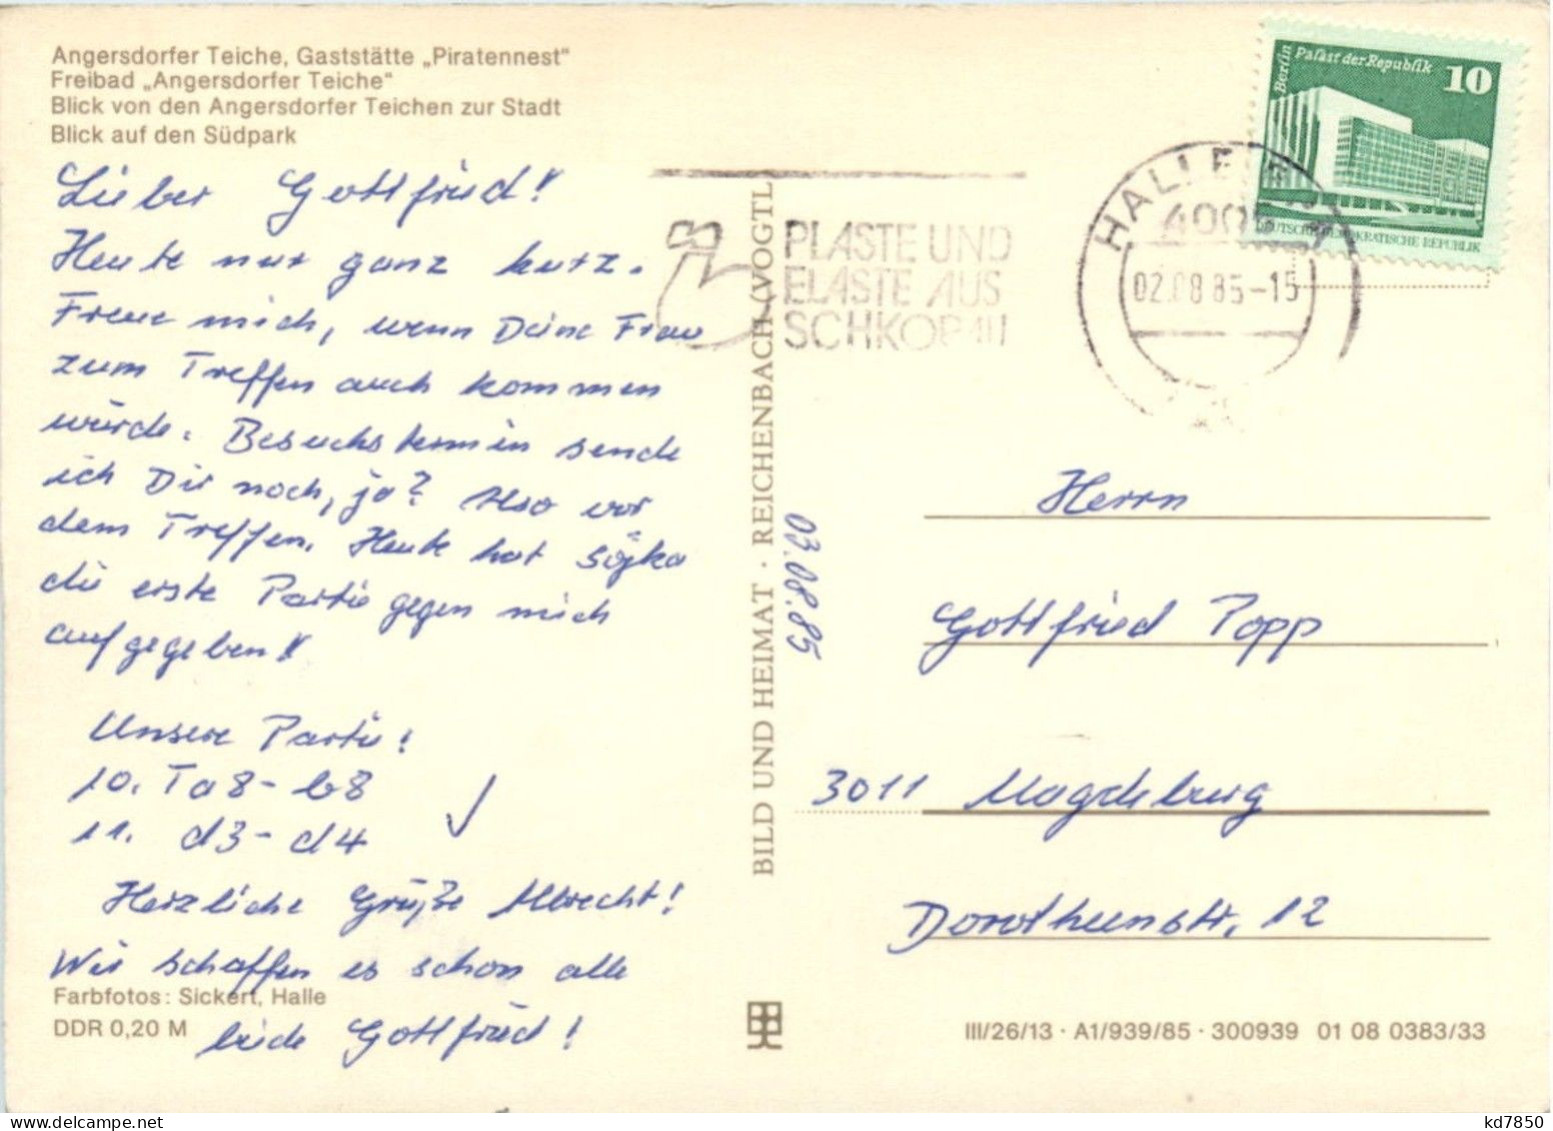 Angersdorfer Teiche, Gaststätte „Piratennest"
Freibad „Angersdorfer Teiche"
Blick von den Angersdorfer Teichen zur Stadt
Blick auf den Südpark
Lieber Gottfried!
Heute nur ganz kurz.
Freue mich, wenn Deine Frau
zum Treffen auch kommen
würde. Besuchstermin sende
ich Dir noch, ja? Also vor
dem Treffen. Heute hat Söjka
die erste Partie gegen mich
aufgegeben!
Unsere Partie!
10. Ta8-b8
11. d3-d4
Herzliche Grüße Albrecht!
Wir schaffen es schon alle
beide Gottfried!
Farbfotos: Sickert, Halle
DDR 0,20 M
BILD UND HEIMAT · REICHENBACH (VOGTL
03.08.85
PLASTE UND
ELASTE AUS
SCHKOPAU
HALLE
4005
02.08.85-15
Berlin Palast der Republik 10
DEUTSCHE DEMOKRATISCHE REPUBLIK
Herrn
Gottfried Popp
3011 Magdeburg
Dorotheenstr. 12
III/26/13 · A1/939/85 · 300939 01 08 0383/33
kd7850